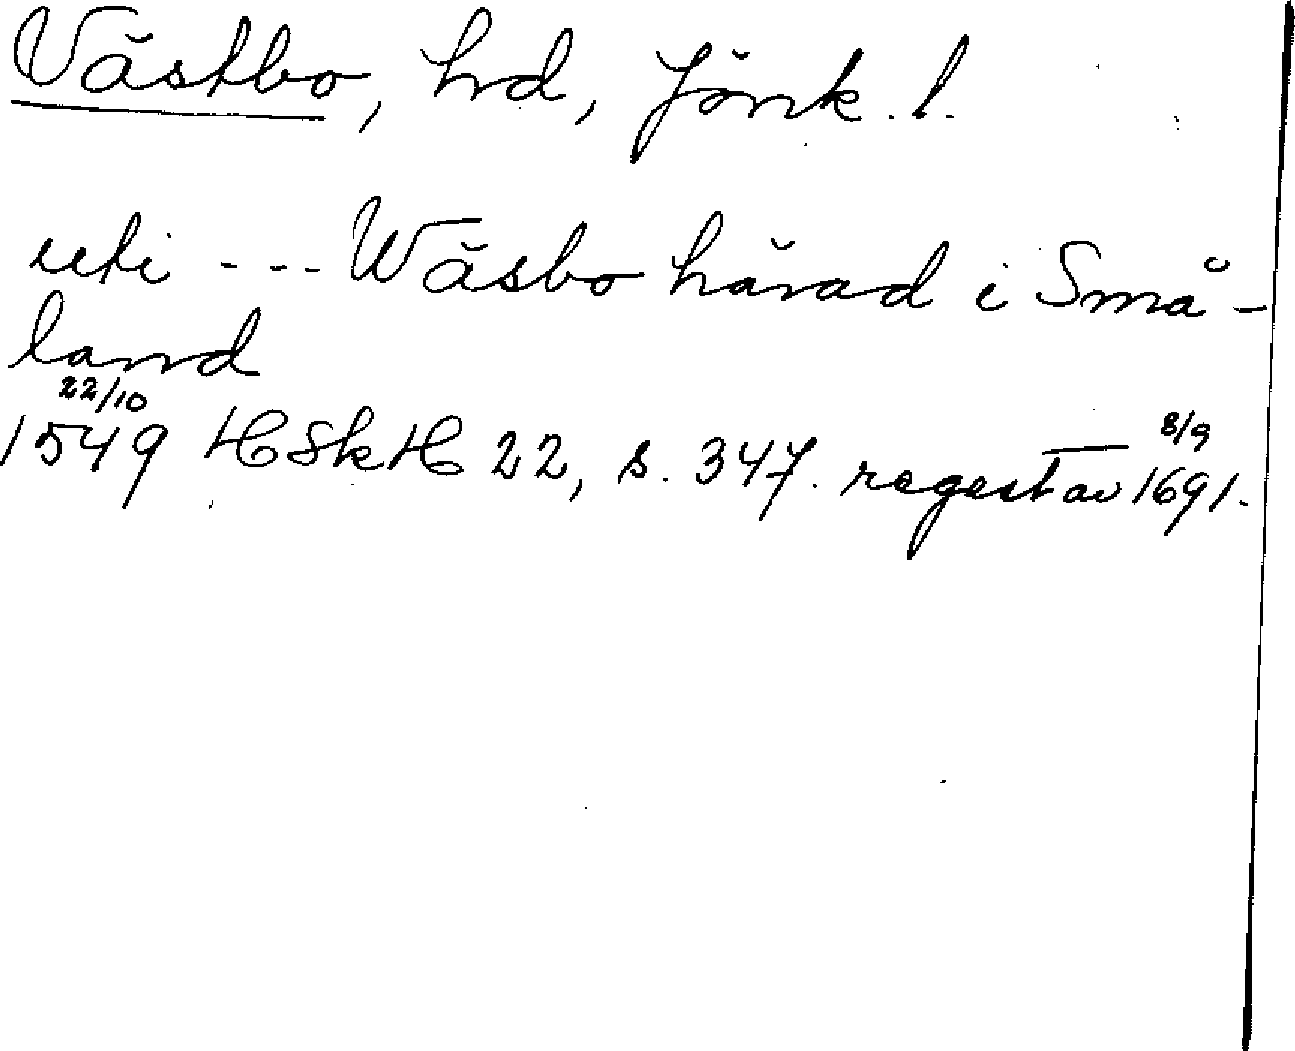 Västbo, hd, Jönk. l.
uti --- Wäsbo härad i Små-
land
1549 22/10 HSkH 22, s. 347. regest av 8/9 1691.